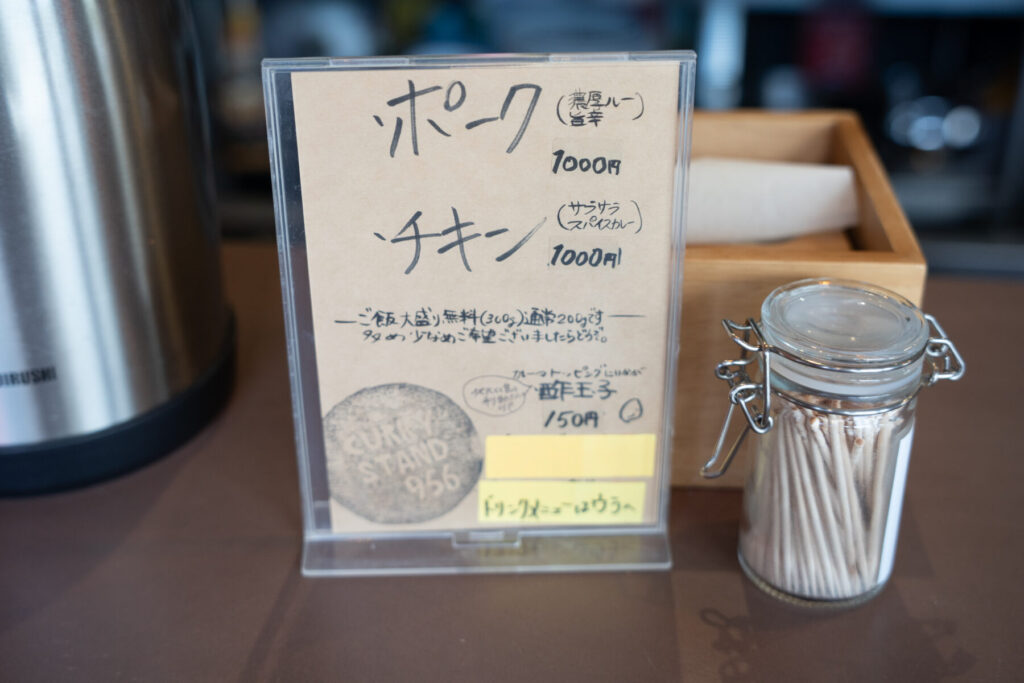 ポーク
(濃厚ルー
旨辛)
1000円
チキン
(サラサラ
スパイスカレー)
1000円
ご飯大盛り無料(300g)通常200gです
多め少なめご希望ございましたらどうぞ。
カレーのトッピングにおすすめ
酢玉子
150円
CURRY
STAND
956
ドリンクメニューはウラへ
JIRUSHI